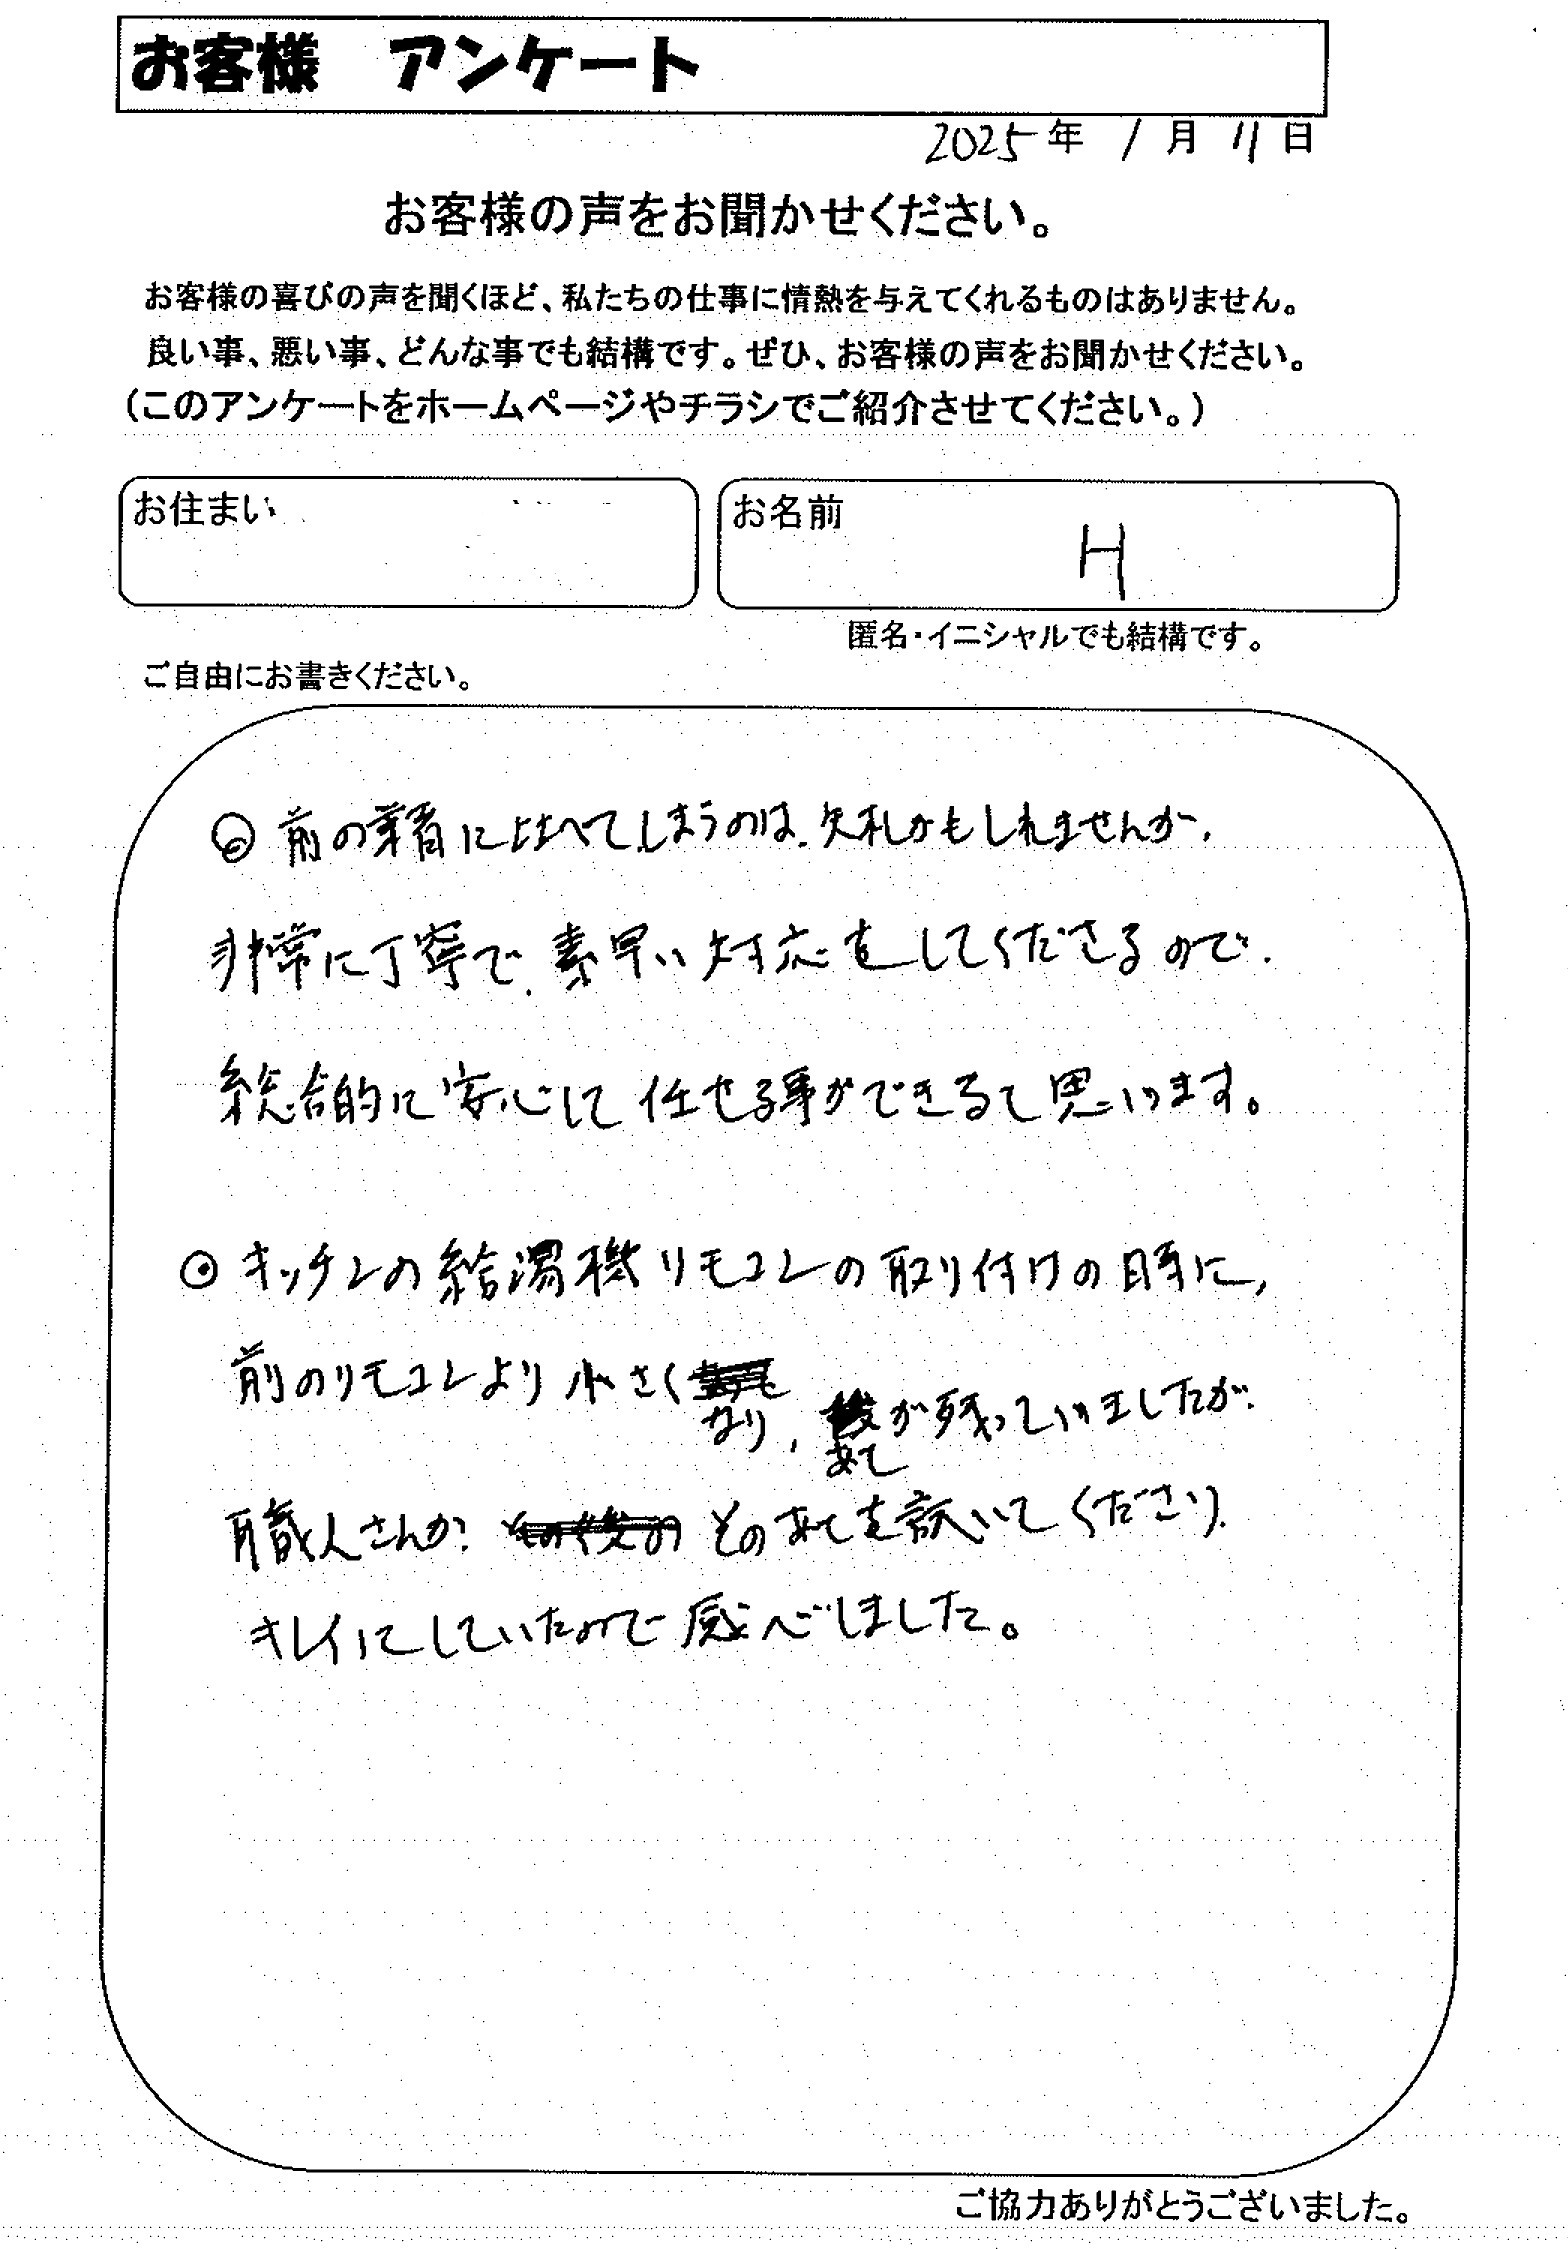 お客様　アンケート
2025年 1月 11日
お客様の声をお聞かせください。
お客様の喜びの声を聞くほど、私たちの仕事に情熱を与えてくれるものはありません。
良い事、悪い事、どんな事でも結構です。ぜひ、お客様の声をお聞かせください。
(このアンケートをホームページやチラシでご紹介させてください。)
お住まい
お名前 H
匿名・イニシャルでも結構です。
ご自由にお書きください。
◎ 前の業者に比べてしまうのは、失礼かもしれませんが、
非常に丁寧で、素早い対応をしてくださるので、
総合的に安心して任せる事ができると思います。
◎ キッチンの給湯機リモコンの取り付けの時に、
前のリモコンより小さくなり、あとが残っていましたが、
職人さんが そのあとを拭いてくださり、
キレイにしていたので感心しました。
ご協力ありがとうございました。